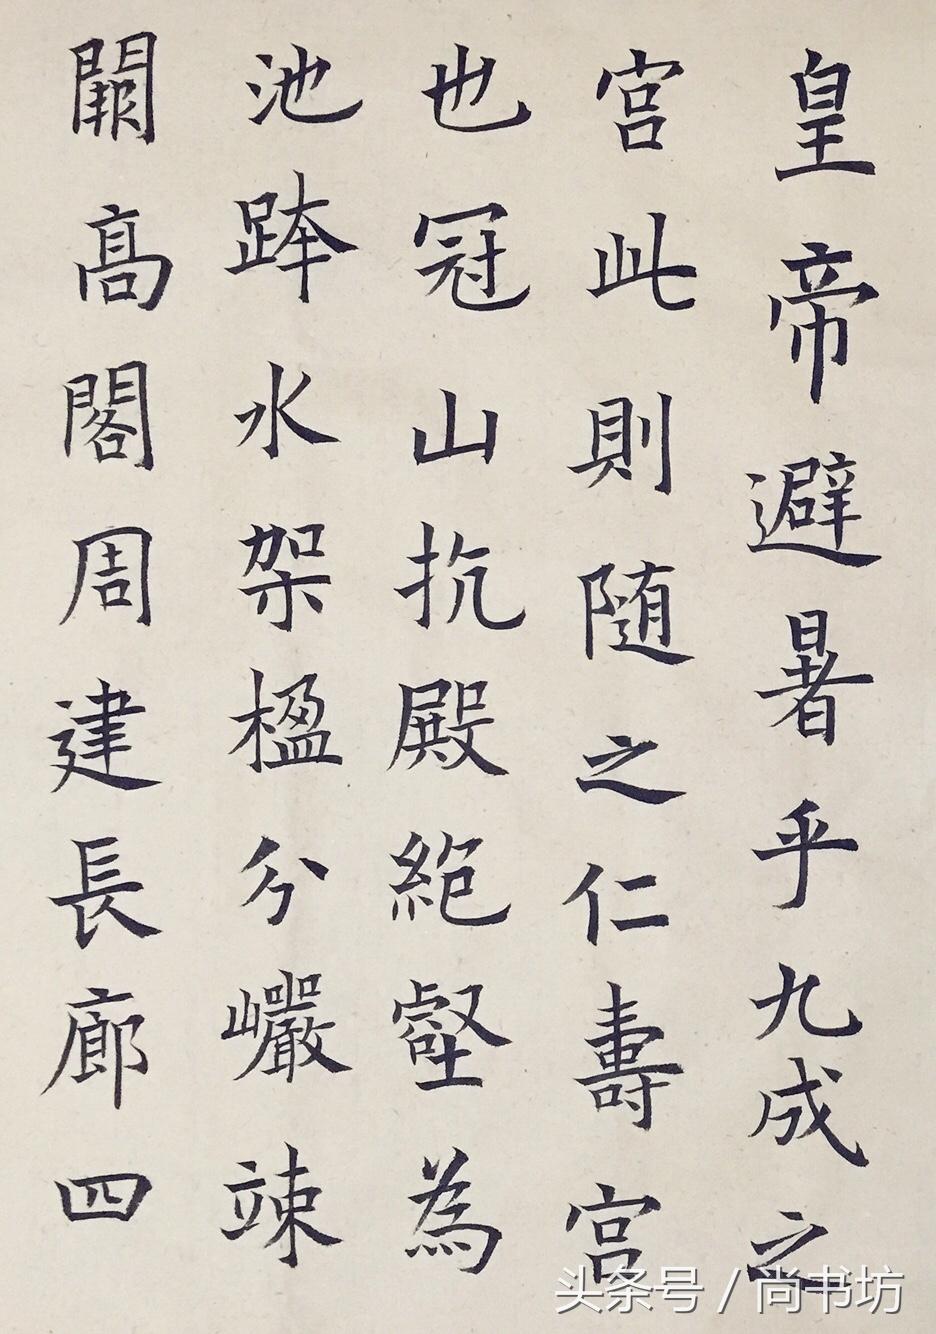 皇帝避暑乎九成之
宫此則随之仁壽宫
也冠山抗殿絶壑為
池跨水架楹分巖竦
闕高閣周建長廊四
头条号 / 尚书坊